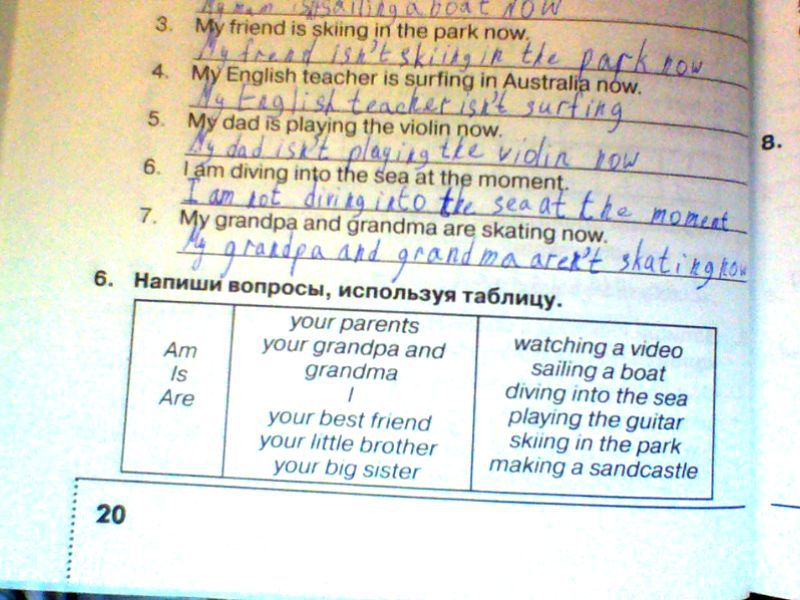 My mam isn't sailing a boat now
3. My friend is skiing in the park now.
My frend isn't skiing in the park now
4. My English teacher is surfing in Australia now.
My English teacher isn't surfing
5. My dad is playing the violin now.
My dad isn't playing the violin now
6. I am diving into the sea at the moment.
I am not diving into the sea at the moment
7. My grandpa and grandma are skating now.
My grandpa and grandma aren't skating now
8.
6. Напиши вопросы, используя таблицу.
Am
Is
Are
your parents
your grandpa and
grandma
I
your best friend
your little brother
your big sister
watching a video
sailing a boat
diving into the sea
playing the guitar
skiing in the park
making a sandcastle
20